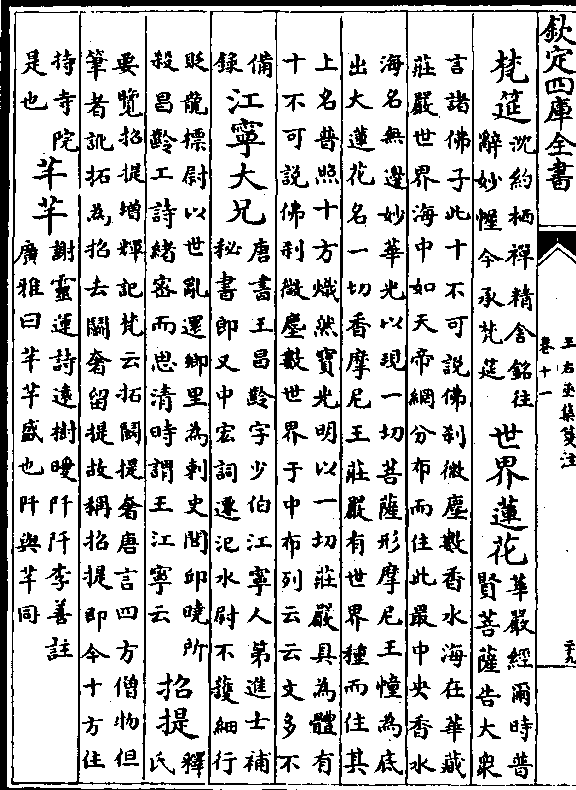 欽定四庫全書
王右丞集箋注
卷十一
二十九
梵筵
沈約栖禪精舍銘往
辭妙幄今承梵筵
世界蓮花
華嚴經爾時普
賢菩薩告大衆
言諸佛子此十不可說佛刹微塵數香水海在華藏
莊嚴世界海中如天帝網分布而住此最中央香水
海名無邊妙華光以現一切菩薩形摩尼王幢為底
出大蓮花名一切香摩尼王莊嚴有世界種而住其
上名普照十方熾然寶光明以一切莊嚴具為體有
十不可說佛刹微塵數世界于中布列云云文多不
備
録
江寧大兄
唐書王昌齡字少伯江寧人第進士補
秘書郎又中宏詞遷汜水尉不護細行
貶龍標尉以世亂還鄉里為刺史閭邱曉所
殺昌齡工詩緒密而思清時謂王江寧云
招提
釋
氏
要覽招提增輝記梵云拓鬭提奢唐言四方僧物但
筆者訛拓為招去鬭奢留提故稱招提即今十方住
持寺院
是也
芊芊
謝靈運詩遠樹曖阡阡李善註
廣雅曰芊芊盛也阡與芊同